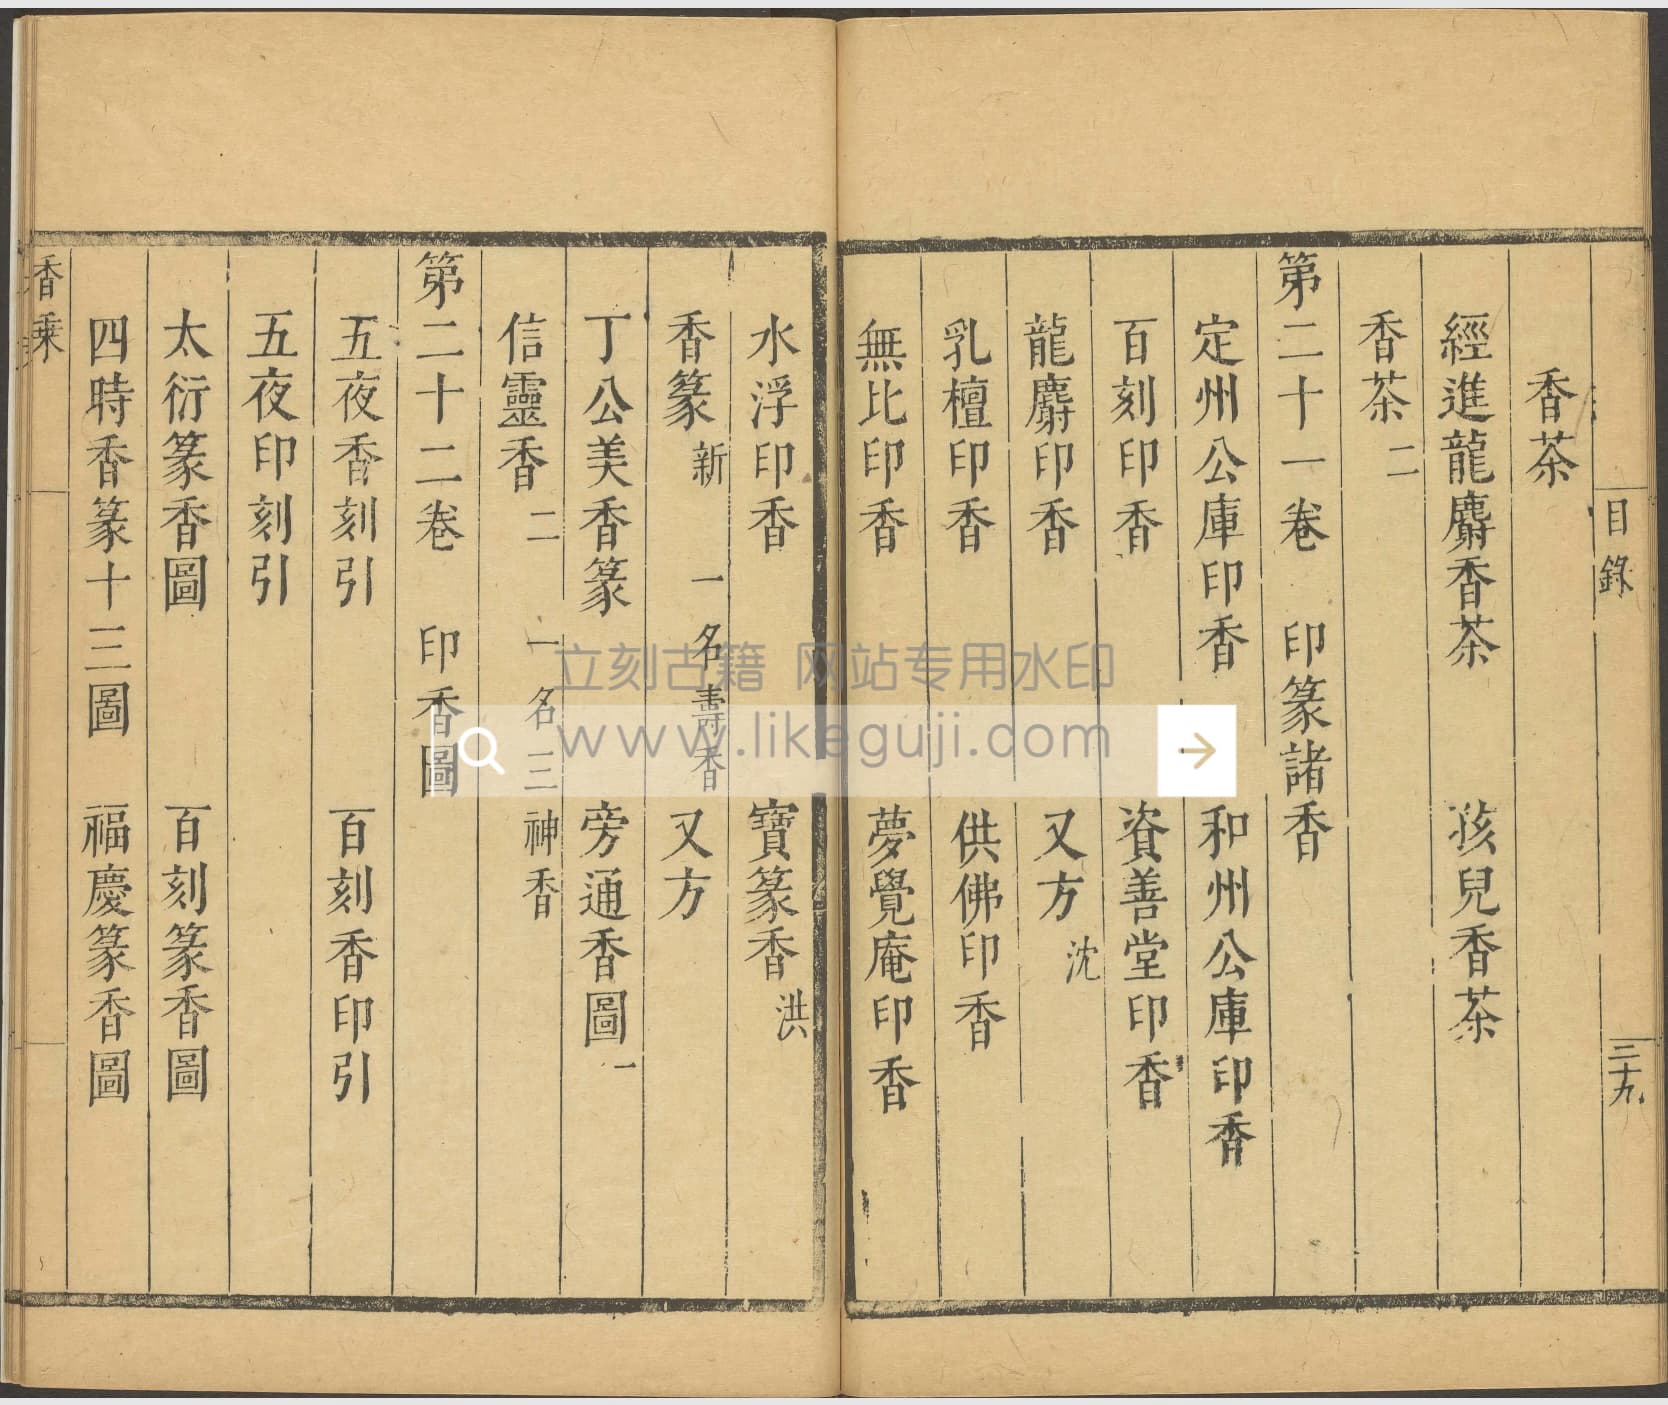 目錄
三十九
香茶
經進龍麝香茶 孩兒香茶
香茶二
第二十一卷 印篆諸香
定州公庫印香 和州公庫印香
百刻印香 資善堂印香
龍麝印香 又方沈
乳檀印香 供佛印香
無比印香 夢覺庵印香
水浮印香 寶篆香洪
香篆新 一名壽香 又方
丁公美香篆 旁通香圖一
信靈香二 一名三神香
第二十二卷 印香圖
五夜香刻引 百刻香印引
五夜印刻引
太衍篆香圖 百刻篆香圖
四時香篆十三圖 福慶篆香圖
香乘
立刻古籍 网站专用水印
www.likeguji.com